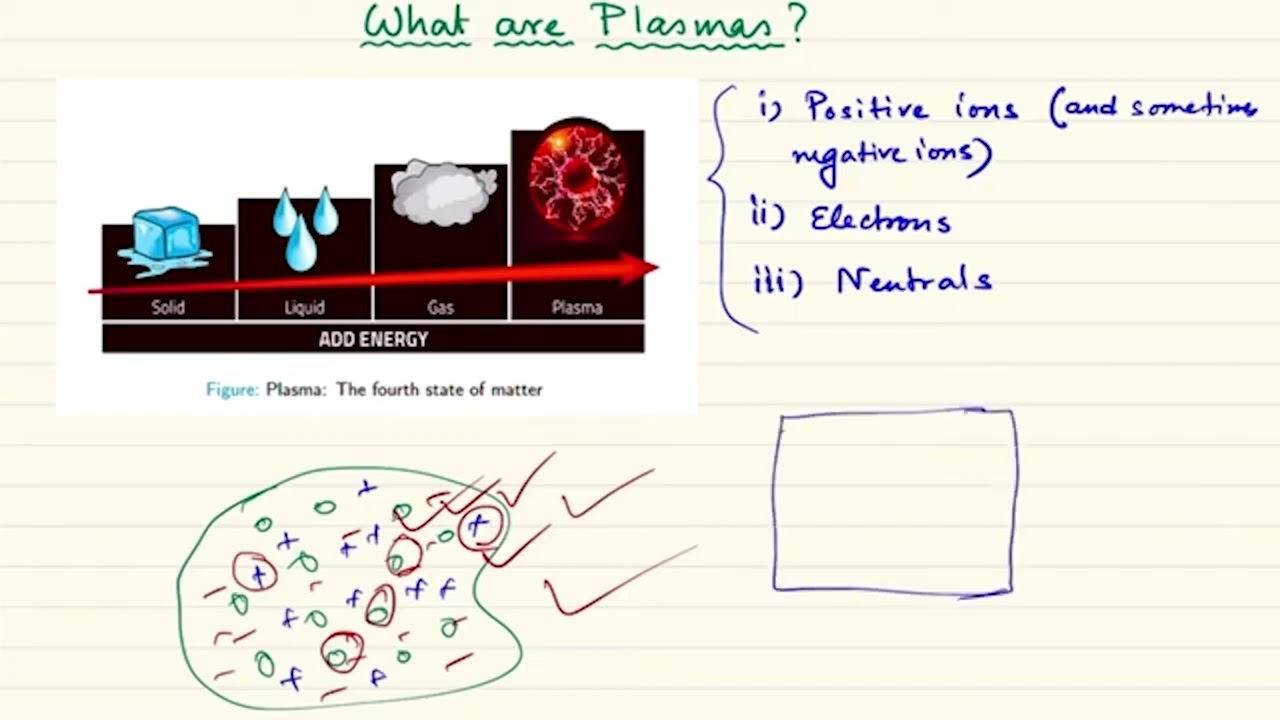 What are Plasmas?
i) Positive ions (and sometimes
negative ions)
ii) Electrons
iii) Neutrals
Solid Liquid Gas Plasma
ADD ENERGY
Figure: Plasma: The fourth state of matter